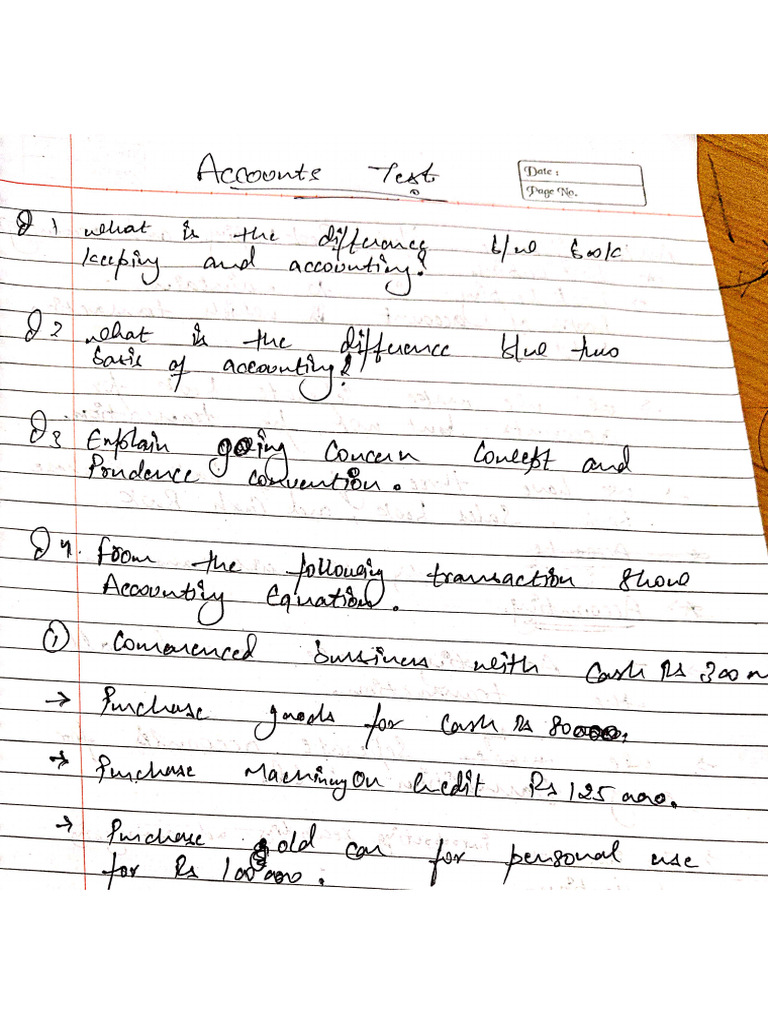 Accounts Test
Date :
Page No.
Q 1 what is the difference b/w book
keeping and accounting?
Q 2 what is the difference b/w two
basis of accounting?
Q 3 Explain going Concern Concept and
Prudence convention.
Q 4. from the following transaction show
Accounting Equation.
① Commenced bussiness with Cash Rs
→ Purchase goods for Cash Rs 80000.
→ Purchase Machinery On Credit Rs 125 000.
→ Purchase old car for personal use
for Rs 100 000.